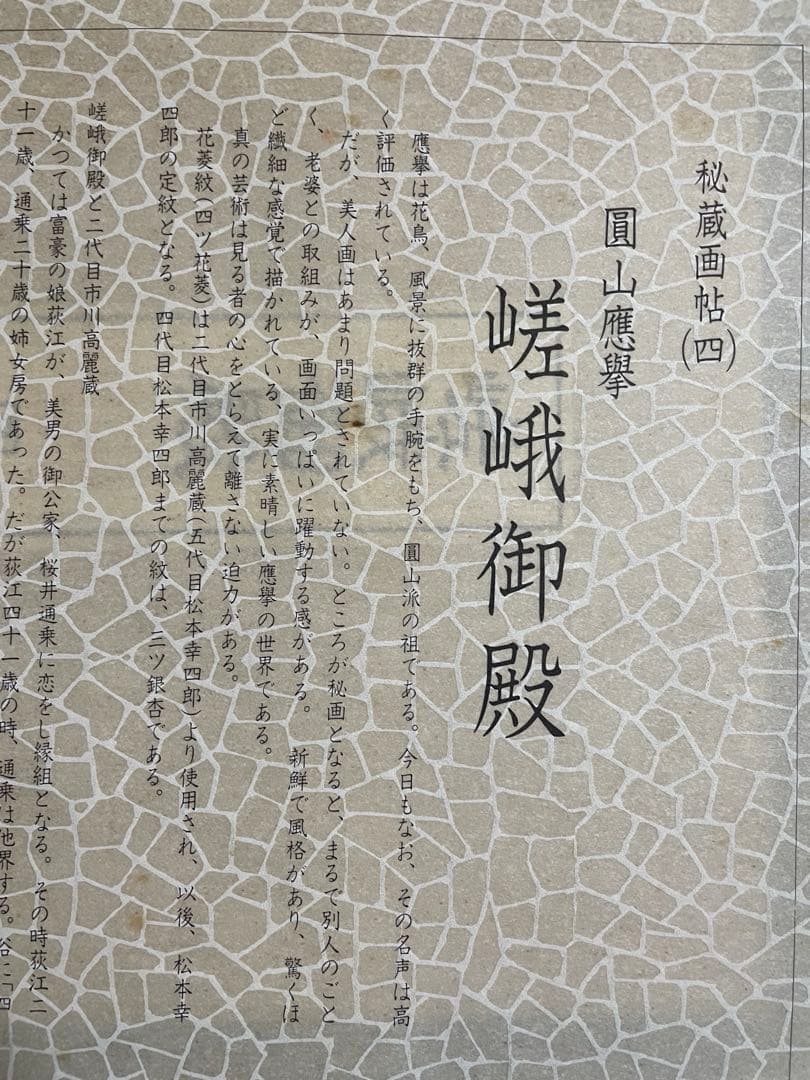 秘蔵画帖(四)
圓山應擧
嵯峨御殿
應擧は花鳥、風景に抜群の手腕をもち、圓山派の祖である。今日もなお、その名声は高
く評価されている。
だが、美人画はあまり問題とされていない。ところが秘画となると、まるで別人のごと
く、老婆との取組みが、画面いっぱいに躍動する感がある。新鮮で風格があり、驚くほ
ど繊細な感覚で描かれている、実に素晴しい應擧の世界である。
真の芸術は見る者の心をとらえて離さない迫力がある。
花菱紋(四ツ花菱)は二代目市川高麗蔵(五代目松本幸四郎)より使用され、以後、松本幸
四郎の定紋となる。四代目松本幸四郎までの紋は、三ツ銀杏である。
嵯峨御殿と二代目市川高麗蔵
かつては富豪の娘荻江が、美男の御公家、桜井通乗に恋をし縁組となる。その時荻江二
十一歳、通乗二十歳の姉女房であった。だが荻江四十一歳の時、通乗は他界する。俗に「四